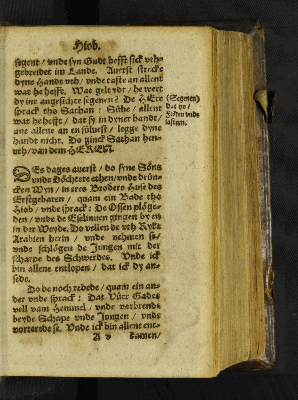 Hiob.
segent / vnde syn Gudt hefft sick vth-
gebreidet im Lande. Auerst strecke
dyne Handt vth / vnde taste an allent
wat he hefft. Wat geldt ydt / he wert
dy int angesichte segenen? De HERE
sprack tho Sathan: Sühe / allent
wat he hefft / dat sy in dyner handt /
ane allene an en süluest / legge dyne
handt nicht. Do ginck Sathan hen-
uth / van dem HEREN.
(Segenen)
dat ys /
vnde
lastern.
DEs dages auerst / do syne Söns
vnde Döchtere ethen / vnde drün-
cken Wyn / in eres Broders Huse des
Erstgebaren / quam ein Bade tho
Hiob / vnde sprack: De Ossen plöge-
den / vnde de Eselinnen gingen by en
in der Weyde. Do vellen de vth Ryke
Arabien herin / vnde nehmen se /
vnde schlögen de Jungen mit der
scharpe des Schwerdes. Vnde ick
bin allene entlopen / dat ick dy an-
sede.
Do he noch redede / quam ein an-
der vnde sprack: Dat Vüer Gades
vell vam Hemmel / vnde verbrende
beyde Schape vnde Jungen / vnde
vorterede se. Vnde ick bin allene ent-
A v
kamen /